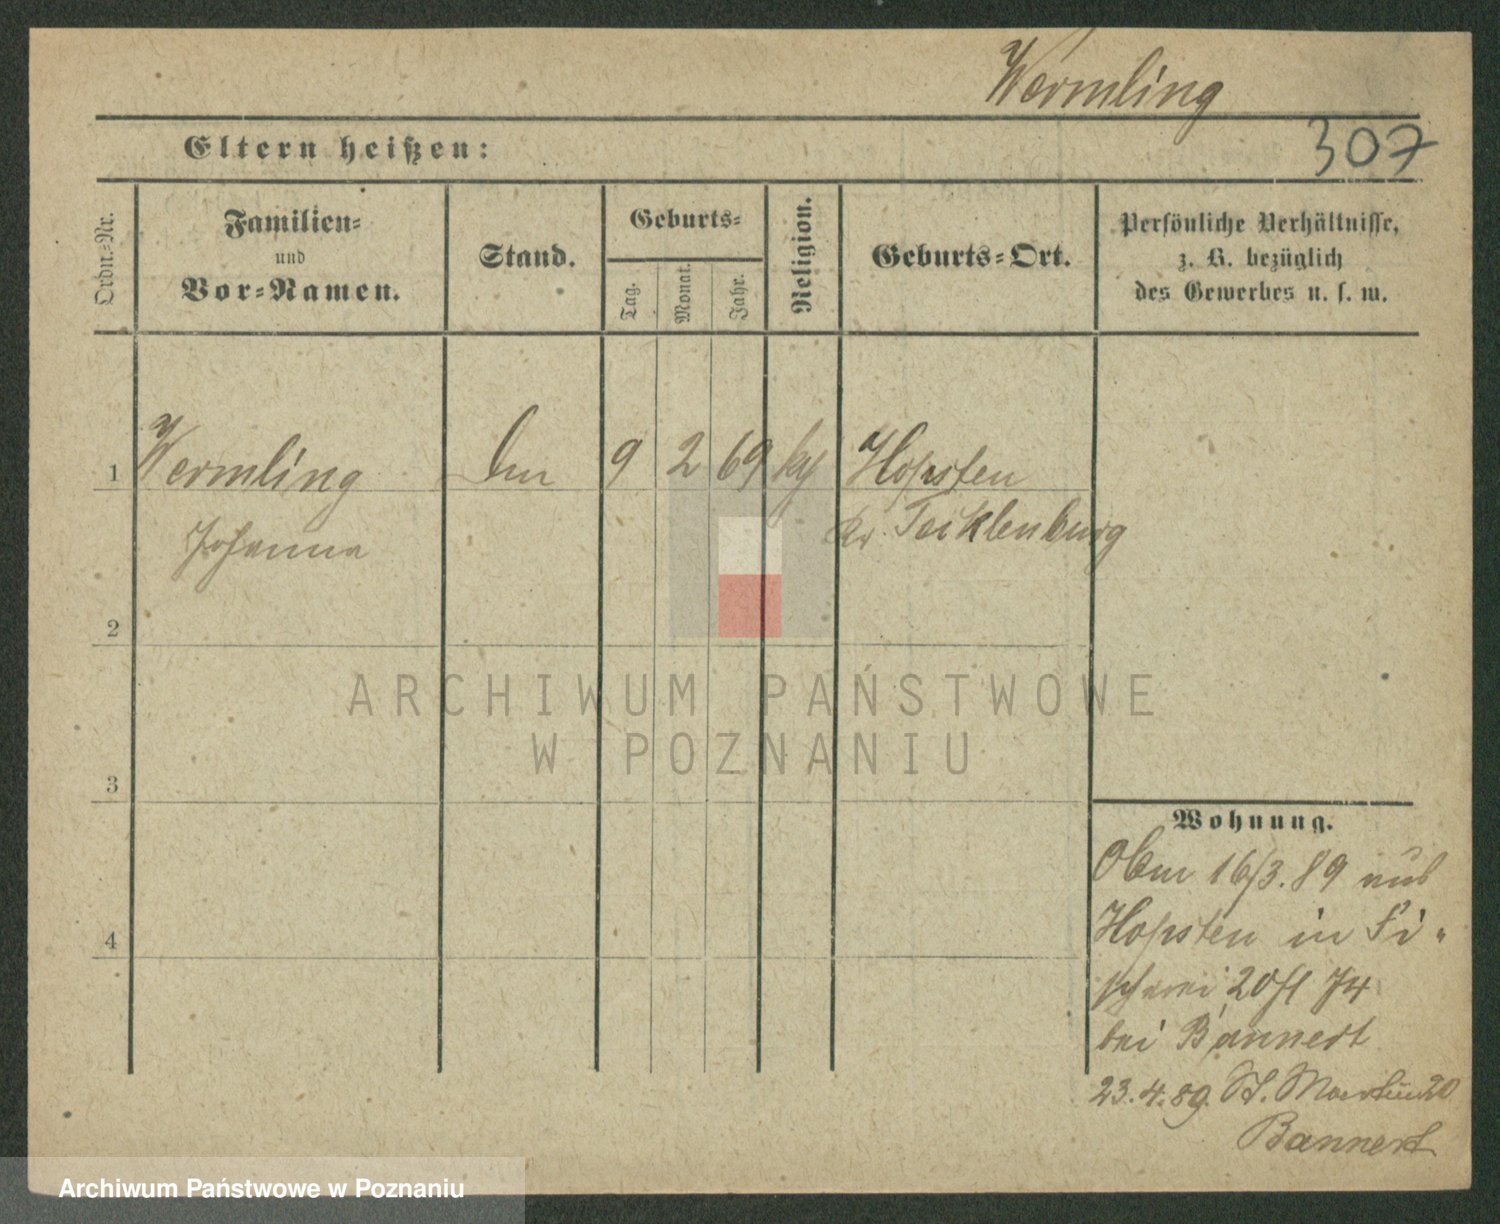 Wermling
307
Eltern heißen:
Ordn.-Nr.
Familien-
und
Vor-Namen.
Stand.
Geburts-
Tag.
Monat.
Jahr.
Religion.
Geburts-Ort.
Persönliche Verhältnisse,
z. B. bezüglich
des Gewerbes u. s. w.
1 Wermling 9 2 69 Hopsten
Johanna Kr. Tecklenburg
2
3
4
ARCHIWUM PAŃSTWOWE
W POZNANIU
Wohnung.
16/3.89 aus
Hopsten in Fi-
scherei 20
bei Bannert
23.4.89. St. Martin 20
Bannert
Archiwum Państwowe w Poznaniu